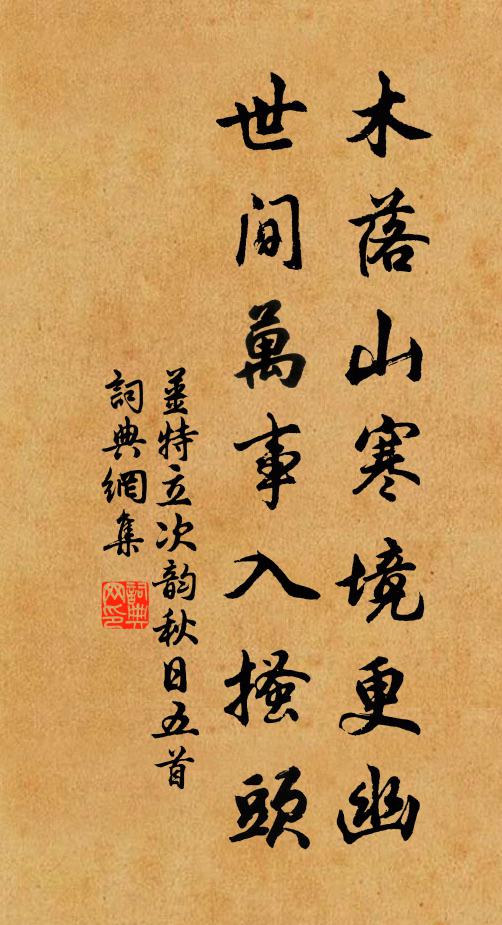 木落山寒境更幽
世間萬事入搔頭
姜特立次韵秋日五首
詞典網集
詞典網印